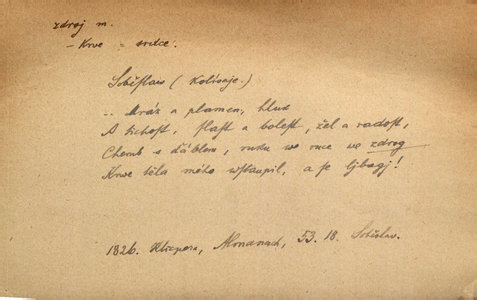 zdroj m.
– Krve = srdce:
Soběslav (Kolísaje.)
.. Mráz a plamen, hluk
A tichost, slast a bolest, žel a radost,
Cherub s ďáblem, ruku we ruce we zdrog
Krwe těla mého wstaupil, a se ljbagj!
1826. Klicpera, Almanach, 53. 18. Soběslav.